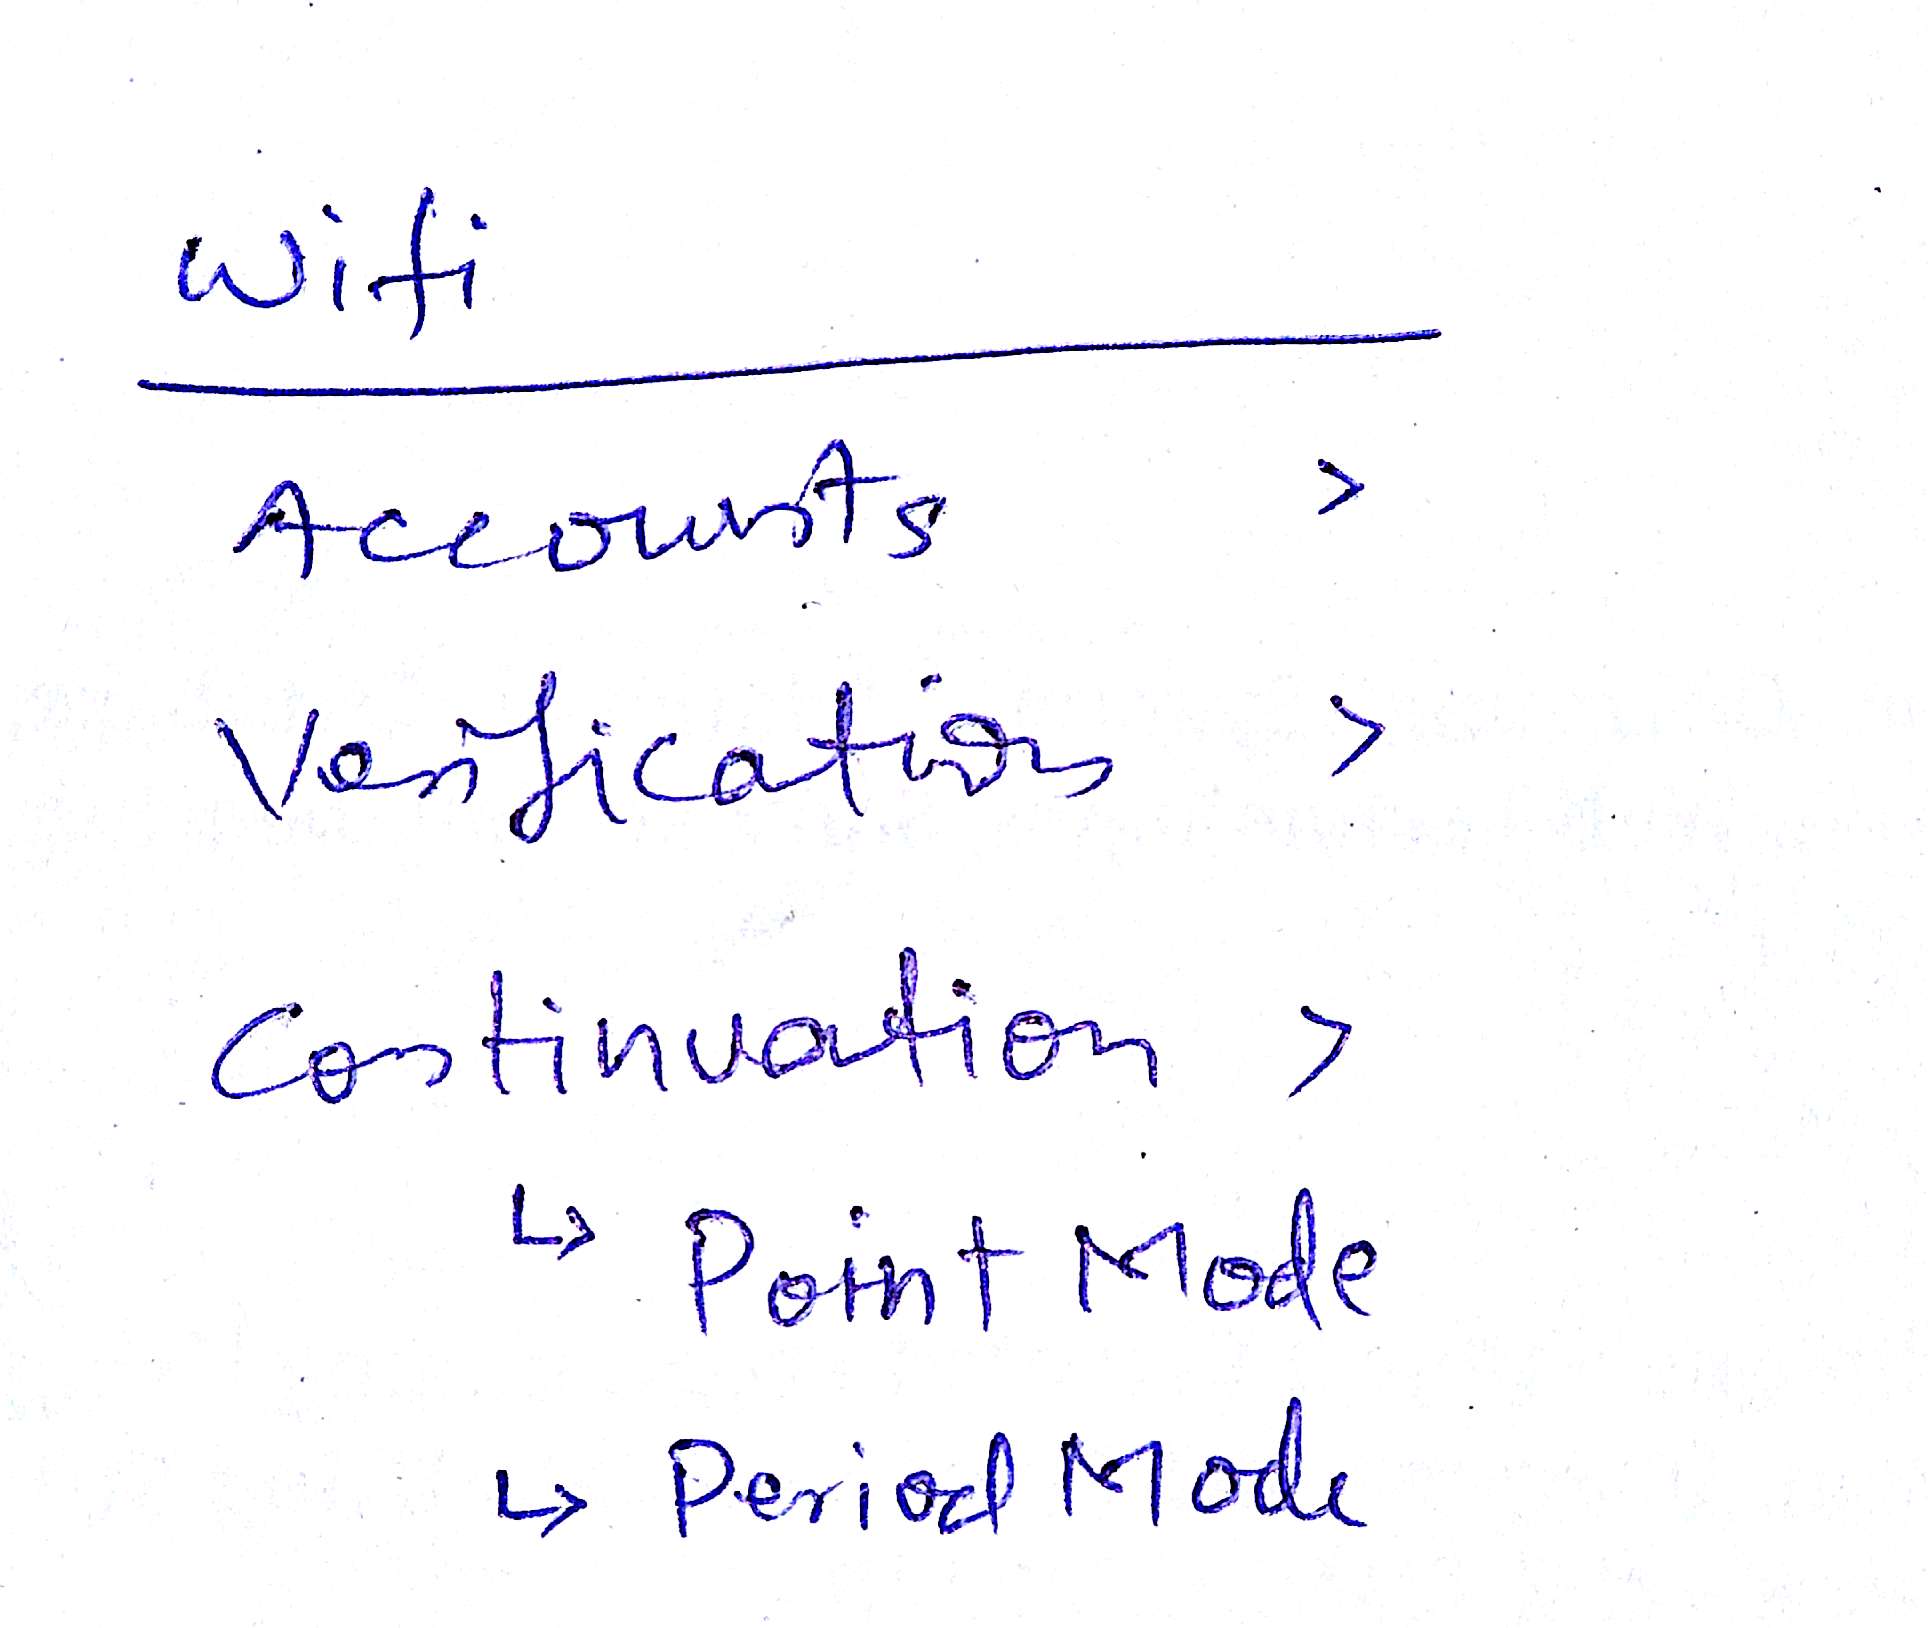 Wifi
Accounts >
Verification >
Continuation >
↳ Point Mode
↳ Period Mode